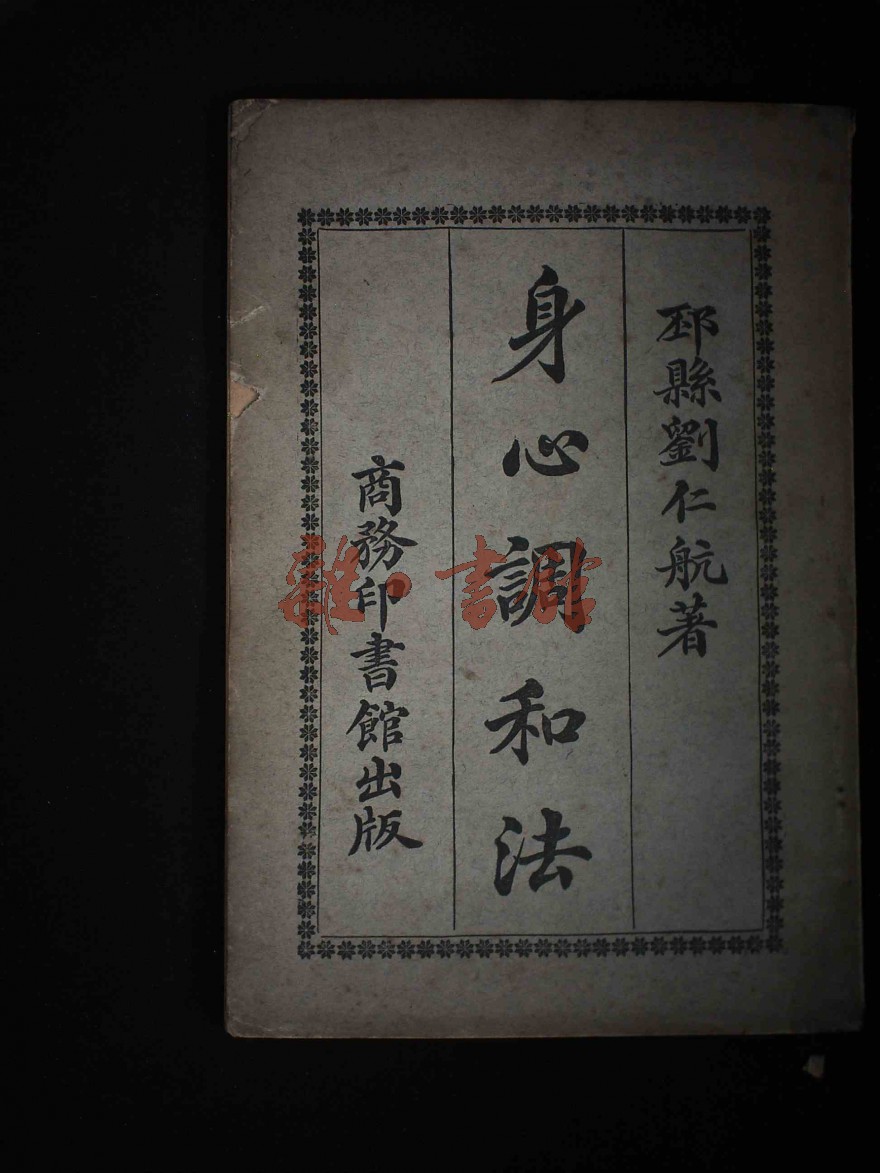 邳縣劉仁航著
身心調和法
商務印書館出版
雜·書館